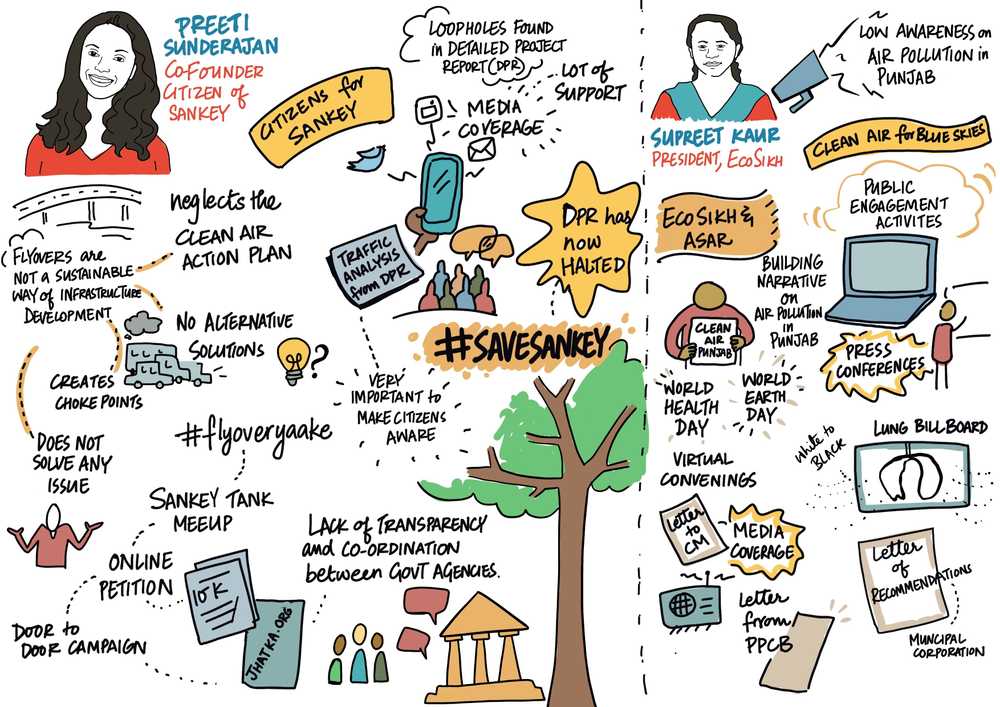 PREETI
SUNDERAJAN
CO-FOUNDER
CITIZEN of
SANKEY
CITIZENS for
SANKEY
LOOPHOLES FOUND
in DETAILED PROJECT
REPORT (DPR)
LOT of
SUPPORT
MEDIA
COVERAGE
neglects the
CLEAN AIR
ACTION PLAN
FLYOVERS are
NOT A SUSTAINABLE
WAY of INFRASTRUCTURE
DEVELOPMENT
TRAFFIC
ANALYSIS
from DPR
DPR has
now
HALTED
#SAVESANKEY
NO ALTERNATIVE
SOLUTIONS
?
CREATES
CHOKE POINTS
VERY
IMPORTANT to
MAKE CITIZENS
AWARE
DOES NOT
SOLVE ANY
ISSUE
#flyoveryaake
SANKEY TANK
MEEUP
ONLINE
PETITION
10K
JHATKA.ORG
DOOR to
DOOR CAMPAIGN
LACK of TRANSPARENCY
and CO-ORDINATION
between GOVT AGENCIES.
SUPREET KAUR
PRESIDENT, ECOSIKH
LOW AWARENESS on
AIR POLLUTION in
PUNJAB
CLEAN AIR for BLUE SKIES
ECOSIKH &
ASAR
PUBLIC
ENGAGEMENT
ACTIVITES
BUILDING
NARRATIVE
on
AIR POLLUTION
in
PUNJAB
CLEAN
AIR
PUNJAB
PRESS
CONFERENCES
WORLD
HEALTH
DAY
WORLD
EARTH
DAY
VIRTUAL
CONVENINGS
White to
BLACK
LUNG BILLBOARD
Letter
to
CM
MEDIA
COVERAGE
Letter
from
PPCB
Letter
of
RECOMMENDATIONS
MUNCIPAL
CORPORATION